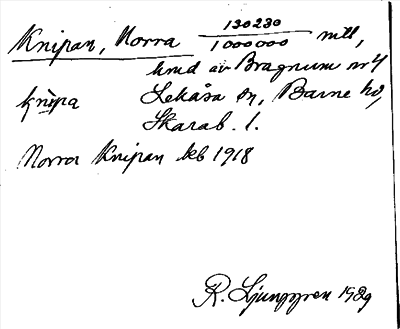 Knipan, Norra 130230/1000000 mtl,
hmd av Bragnum nr 4
knipa Lekåsa sn, Barne hd,
Skarab. l.
Norra Knipan Jeb 1918
R. Ljunggren 1929